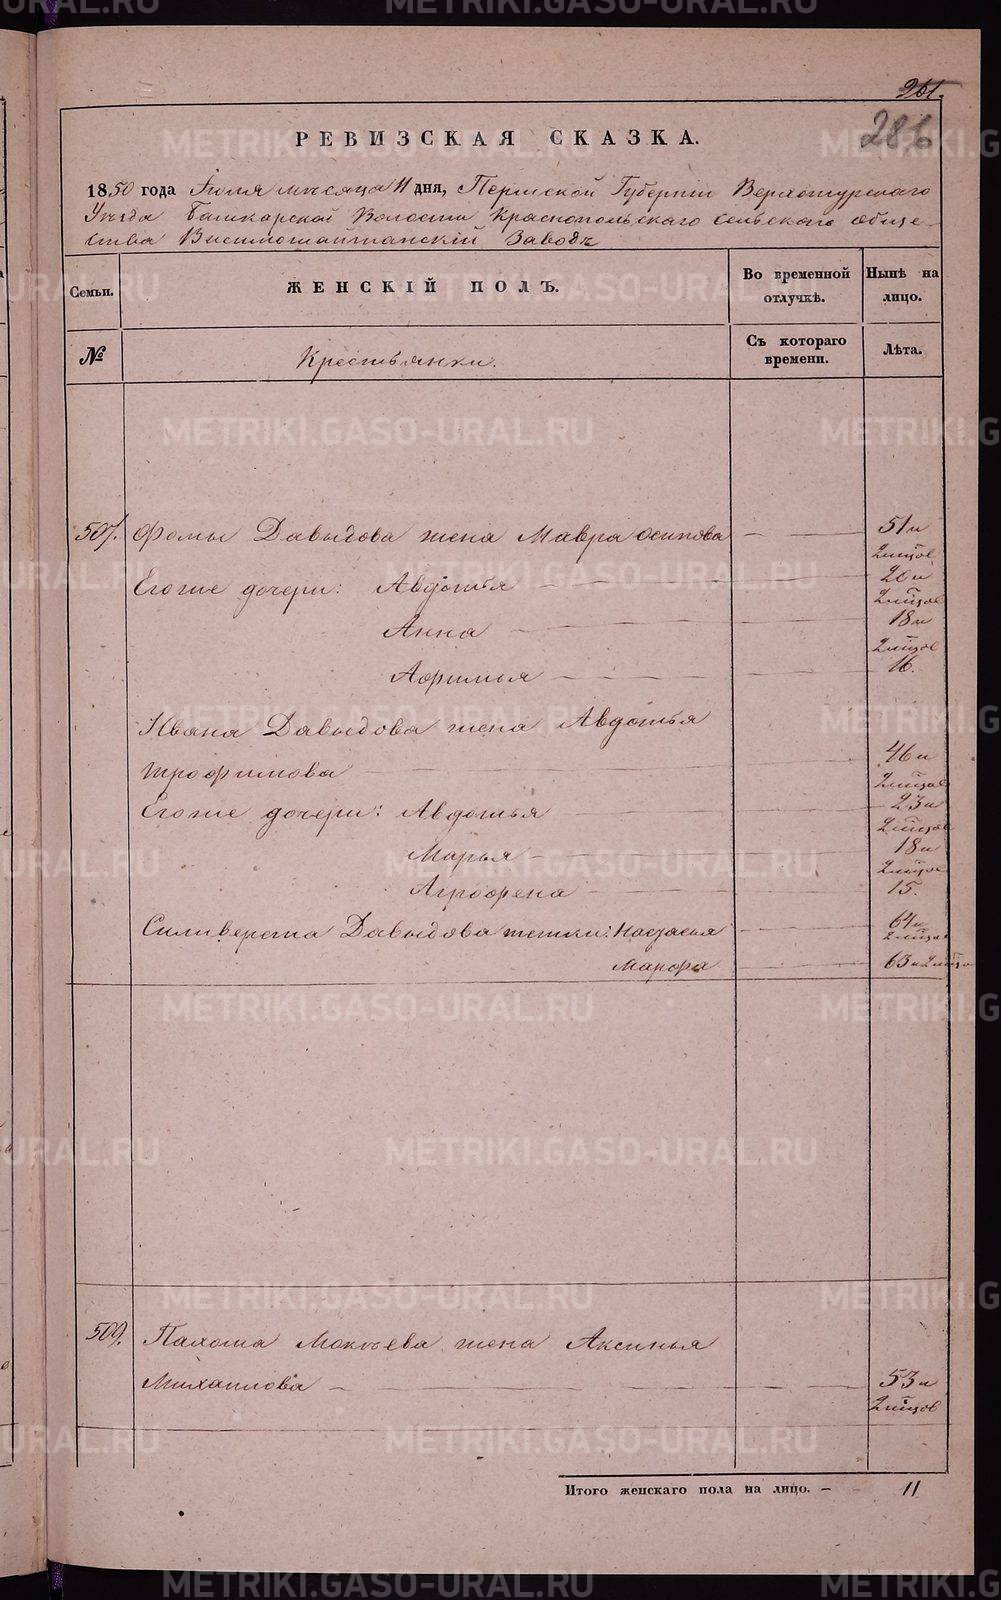 261.
286
РЕВИЗСКАЯ СКАЗКА.
1850 года Iюля месяца 11 дня, Пермской Губернiи Верхотурскаго
Уезда Башкарской Волости Краснопольскаго сельскаго обще-
ства Висимошайтанскiй Заводъ
Семьи.
ЖЕНСКІЙ ПОЛЪ.
Во временной отлучкѣ.
Нынѣ на лицо.
№
Крестьянки.
Съ котораго времени.
Лѣта.
507. Фомы Давыдова жена Мавра Осипова — 51 и
2 мцов
Его же дочери: Авдотья — 20 и
2 мцов
Анна — 18 и
2 мцов
Афимья — 16.
Ивана Давыдова жена Авдотья
Трофимова — 46 и
2 мцов
Его же дочери: Авдотья — 23 и
2 мцов
Марья — 18 и
2 мцов
Аграфена — 15.
Силиверста Давыдова тетки: Настасья — 64 и
2 мцов
Марфа — 63 и 2 мцо
509. Пахома Мокѣева жена Аксинья
Михаилова — 53 и
2 мцов
Итого женскаго пола на лицо. — 11
METRIKI.GASO-URAL.RU